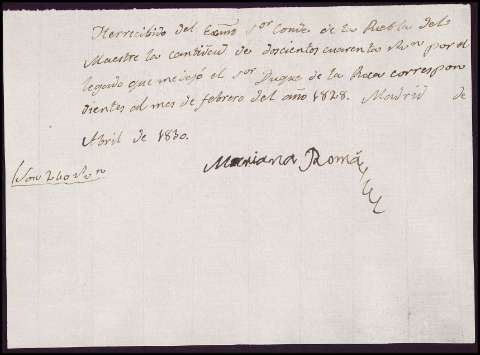 He rrecibido del Exmo Sor Conde de la Puebla del
Maestre la cantidad de doscientos cuarenta Rn por el
legado que me dejó el sor Duque de la Roca correspon
dientes al mes de febrero del año 1828. Madrid de
Abril de 1830.
Son 240 Rn
Mariana Romá